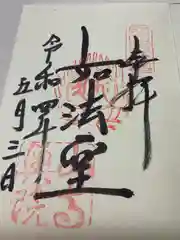 奉拝
如法堂
令和四年
五月三日